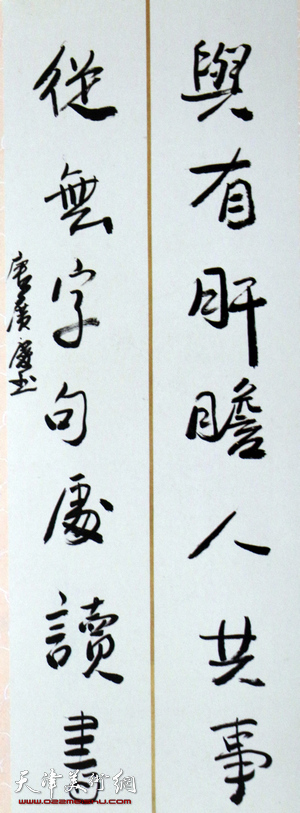 與有肝膽人共事
從無字句處讀書
唐廣慶書
天津美术网
www.022meishu.com